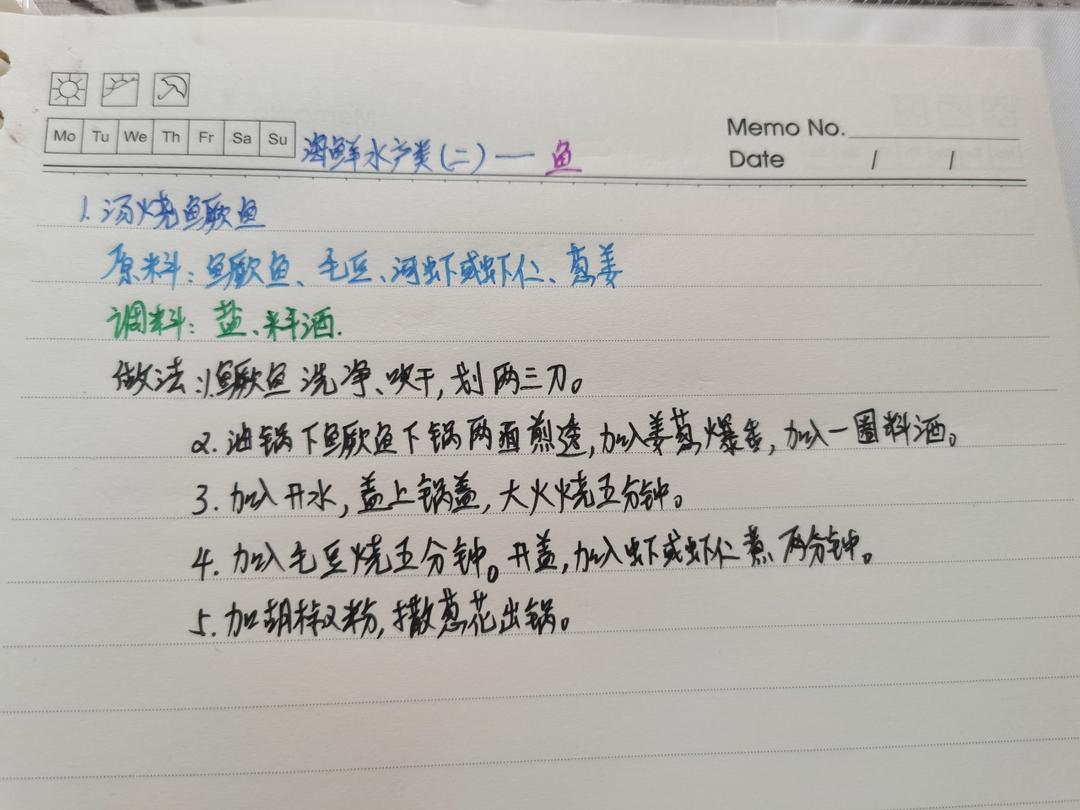 Mo Tu We Th Fr Sa Su
海鲜水产类(二)——鱼
Memo No.
Date / /
1.汤烧鳜鱼
原料:鳜鱼、毛豆、河虾或虾仁、葱姜
调料:盐、料酒.
做法:1.鳜鱼洗净、吹干,划两三刀。
2.油锅下鳜鱼下锅两面煎透,加入姜葱爆香,加入一圈料酒。
3.加入开水,盖上锅盖,大火烧五分钟。
4.加入毛豆烧五分钟。开盖,加入虾或虾仁煮两分钟。
5.加胡椒粉,撒葱花出锅。